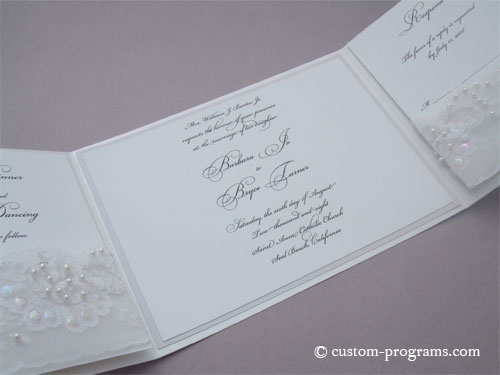 nner
d
Dancing
o follow
Mrs. William J. Bowtar Jr.
requests the honour of your presence
at the marriage of her daughter
Barbara Jo
to
Bryce Turner
Saturday the ninth day of August
Two thousand and eight
Saint Anne Catholic Church
Seal Beach, California
Response
The favor of a reply is requested
by July 12, 2008
M
© custom-programs.com